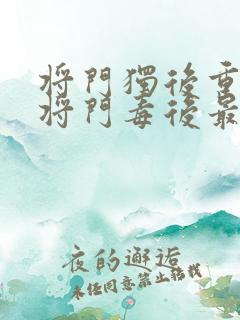 将門獨後重
将門毒後最
夜的邂逅
未经同意禁止转载